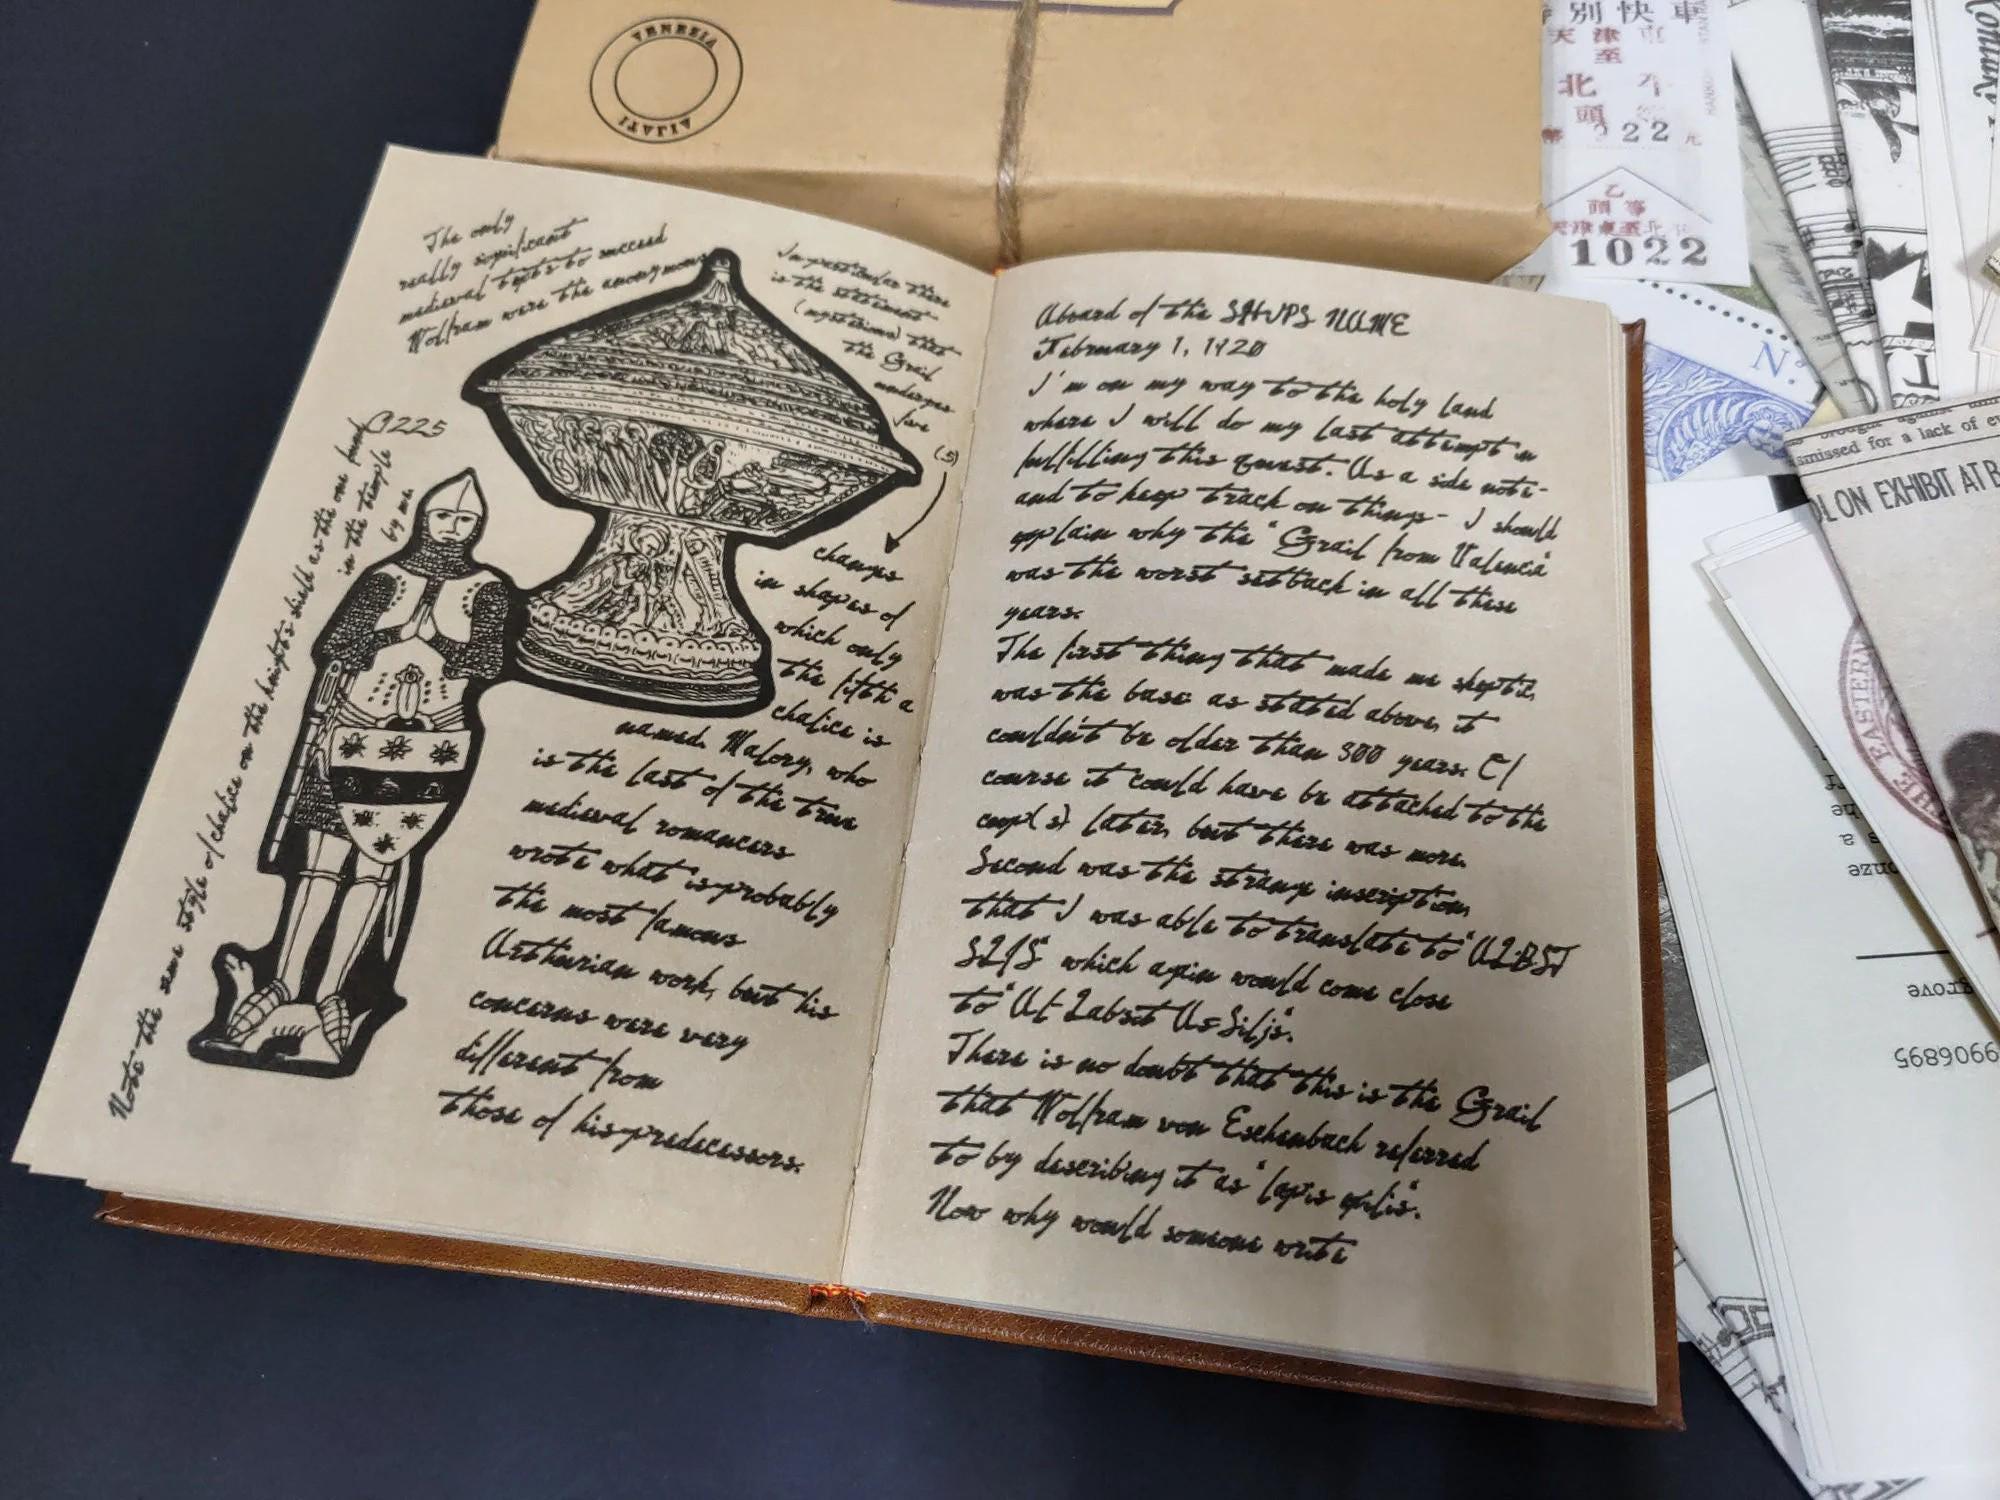 VENEZIA
別快車
天津東
至
北
頭
322元
乙
頭等
1022
N.
smissed for a lack of ev
OL ON EXHIBIT AT B
EASTERN
grove
9906895
The only
really significant
medieval texts to succeed
Wolfram were the anonymous
In particular there
is the statement
(mysterious) that
the Grail
undergoes
five
(5)
changes
in shapes of
which only
the fifth a
chalice is
named. Malory, who
is the last of the true
medieval romancers
wrote what is probably
the most famous
Arthurian work, but his
concerns were very
different from
those of his predecessors.
1225
Note the same style of chalice on the knight's shield as the one found
in the temple
by me
Aboard of the SHIPS NAME
February 1, 1920
I'm on my way to the holy land
where I will do my last attempt in
fulfilling this quest. As a side note-
and to keep track on things- I should
explain why the "Grail from Valencia"
was the worst setback in all these
years.
The first thing that made me skeptic,
was the base: as stated above, it
couldn't be older than 300 years. Of
course it could have be attached to the
cup(s) later, but there was more.
Second was the strange inscription,
that I was able to translate to "ALBST
SLJS" which again would come close
to "At Labsit As-Siljs".
There is no doubt that this is the Grail
that Wolfram von Eschenbach referred
to by describing it as "lapis exilis".
Now why would someone write